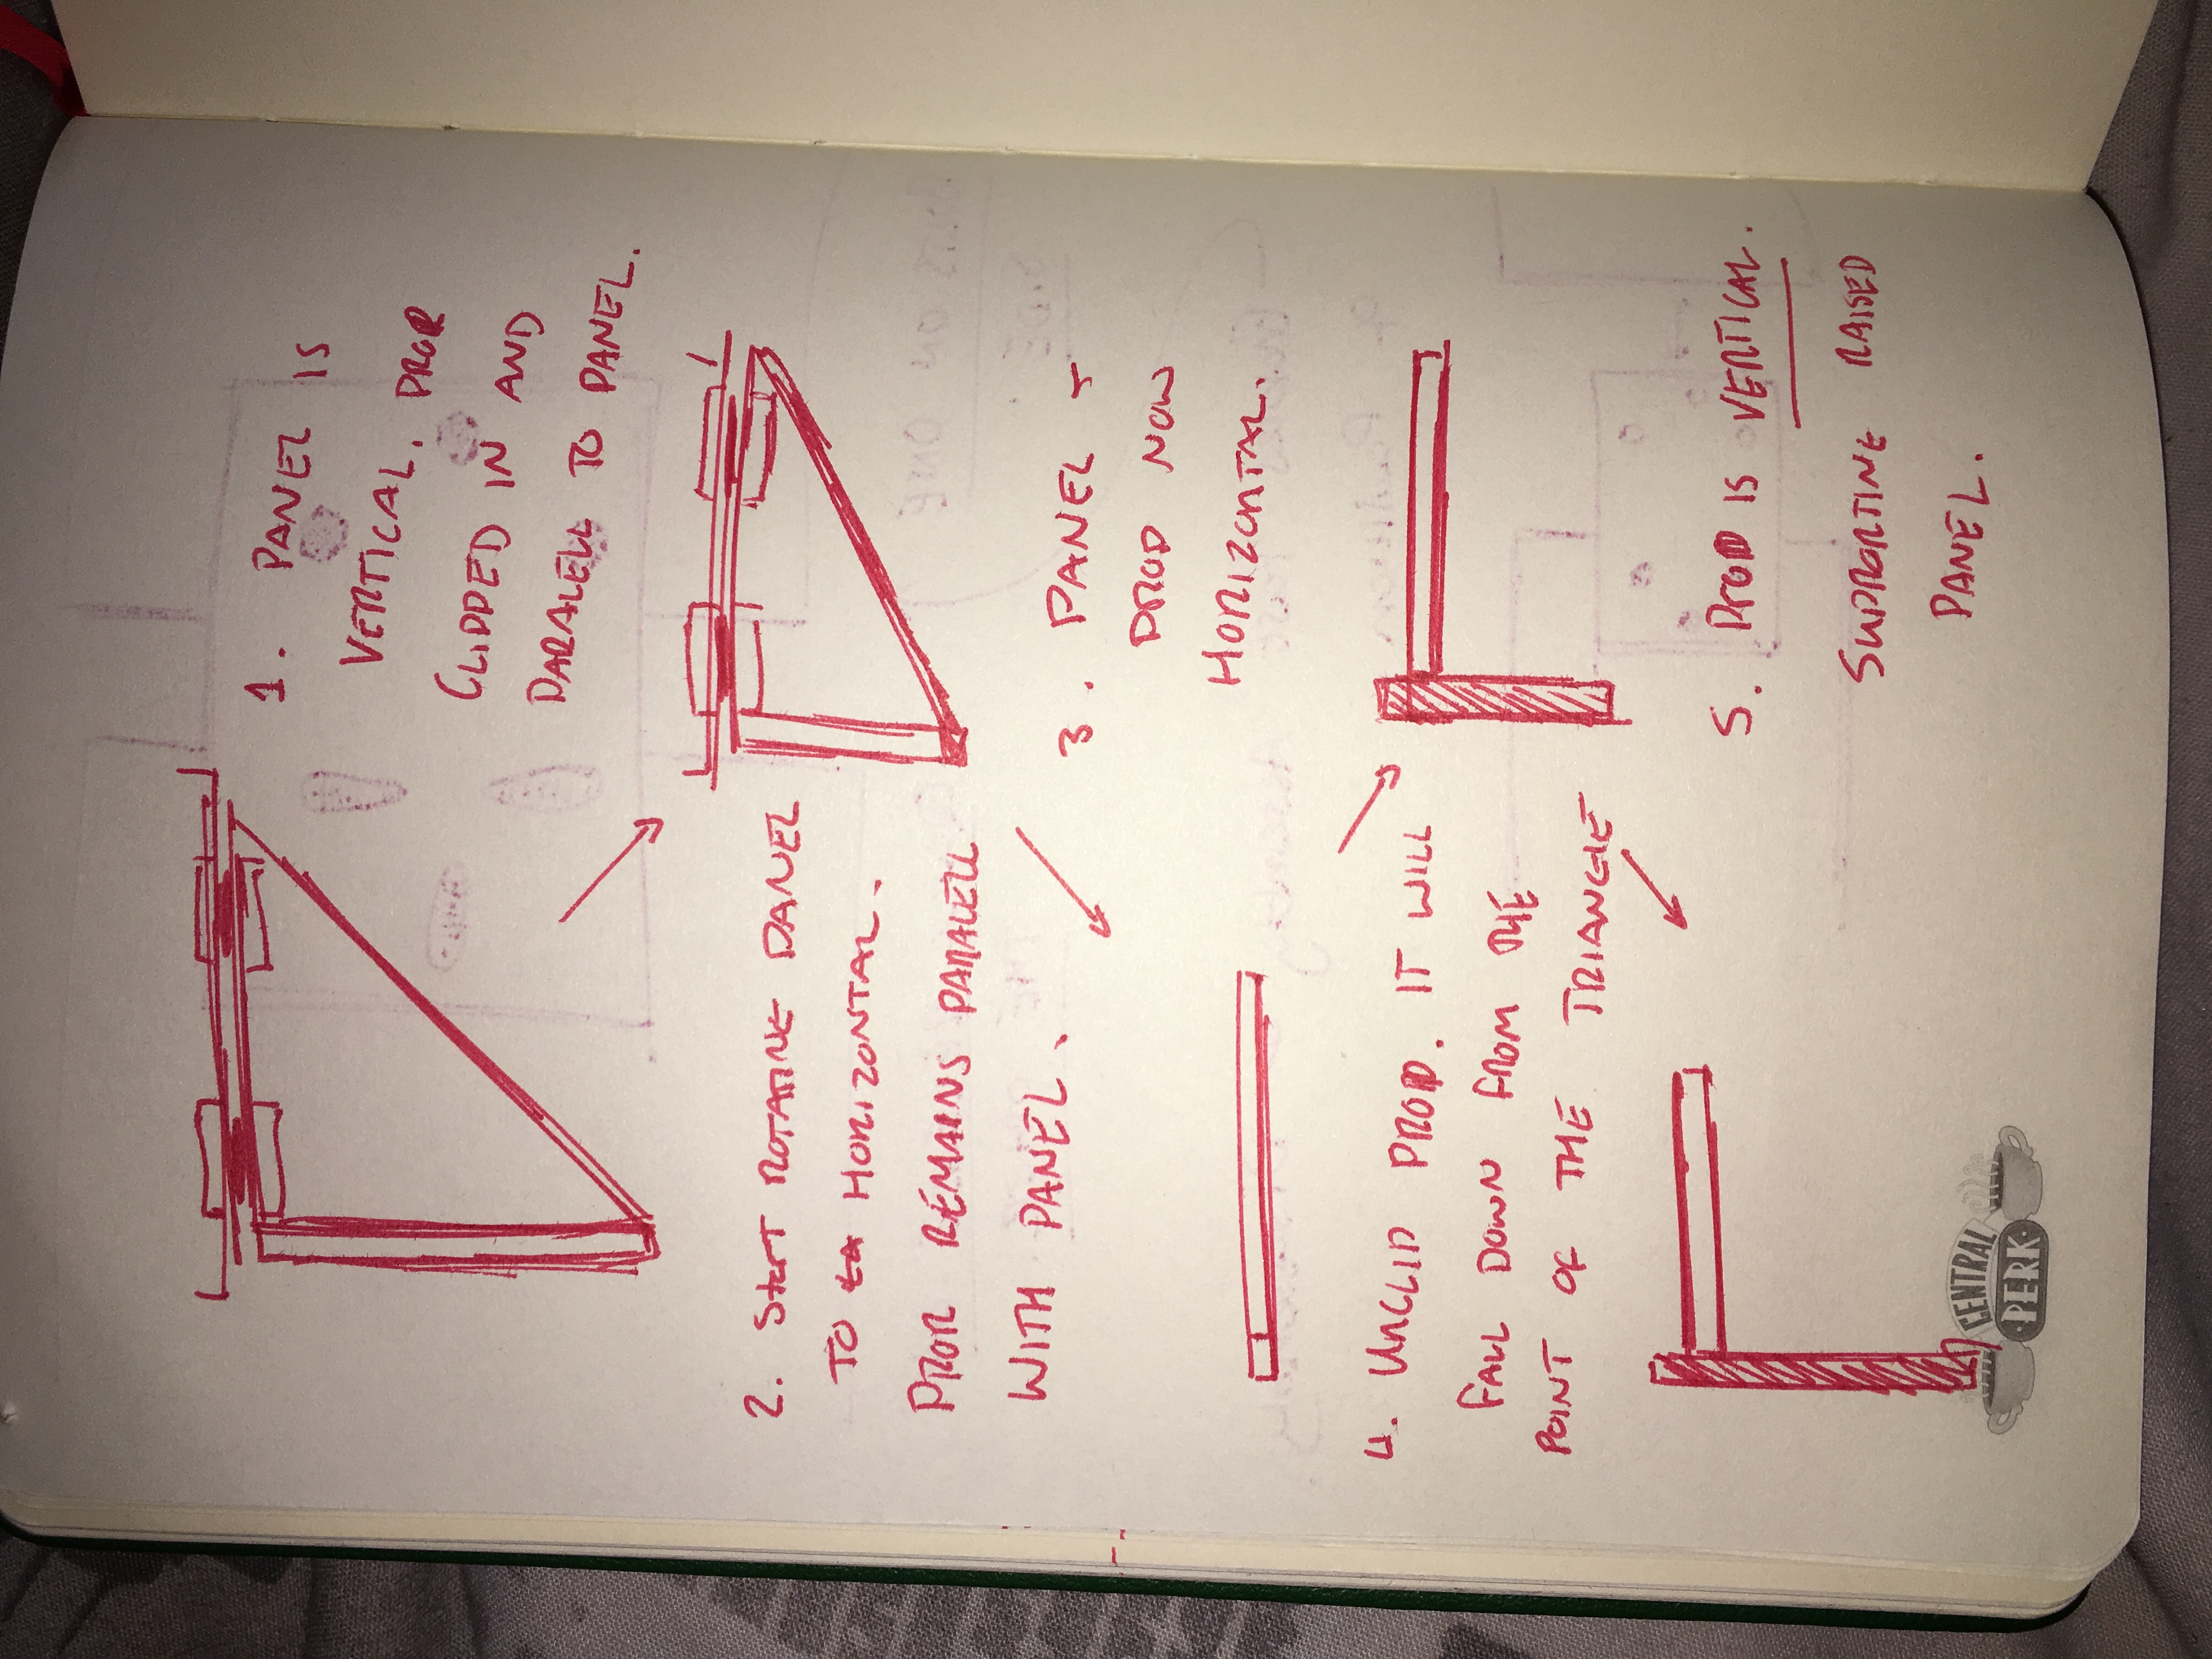 1. PANEL IS
VERTICAL. PROP
CLIPPED IN AND
PARALELL TO PANEL.
2. START ROTATING PANEL
TO HORIZONTAL.
PROP REMAINS PARALELL
WITH PANEL.
3. PANEL +
PROP NOW
HORIZONTAL.
4. UNCLIP PROP. IT WILL
FALL DOWN FROM THE
POINT OF THE TRIANGLE
5. PROP IS VERTICAL.
SUPPORTING RAISED
PANEL.
CENTRAL
PERK